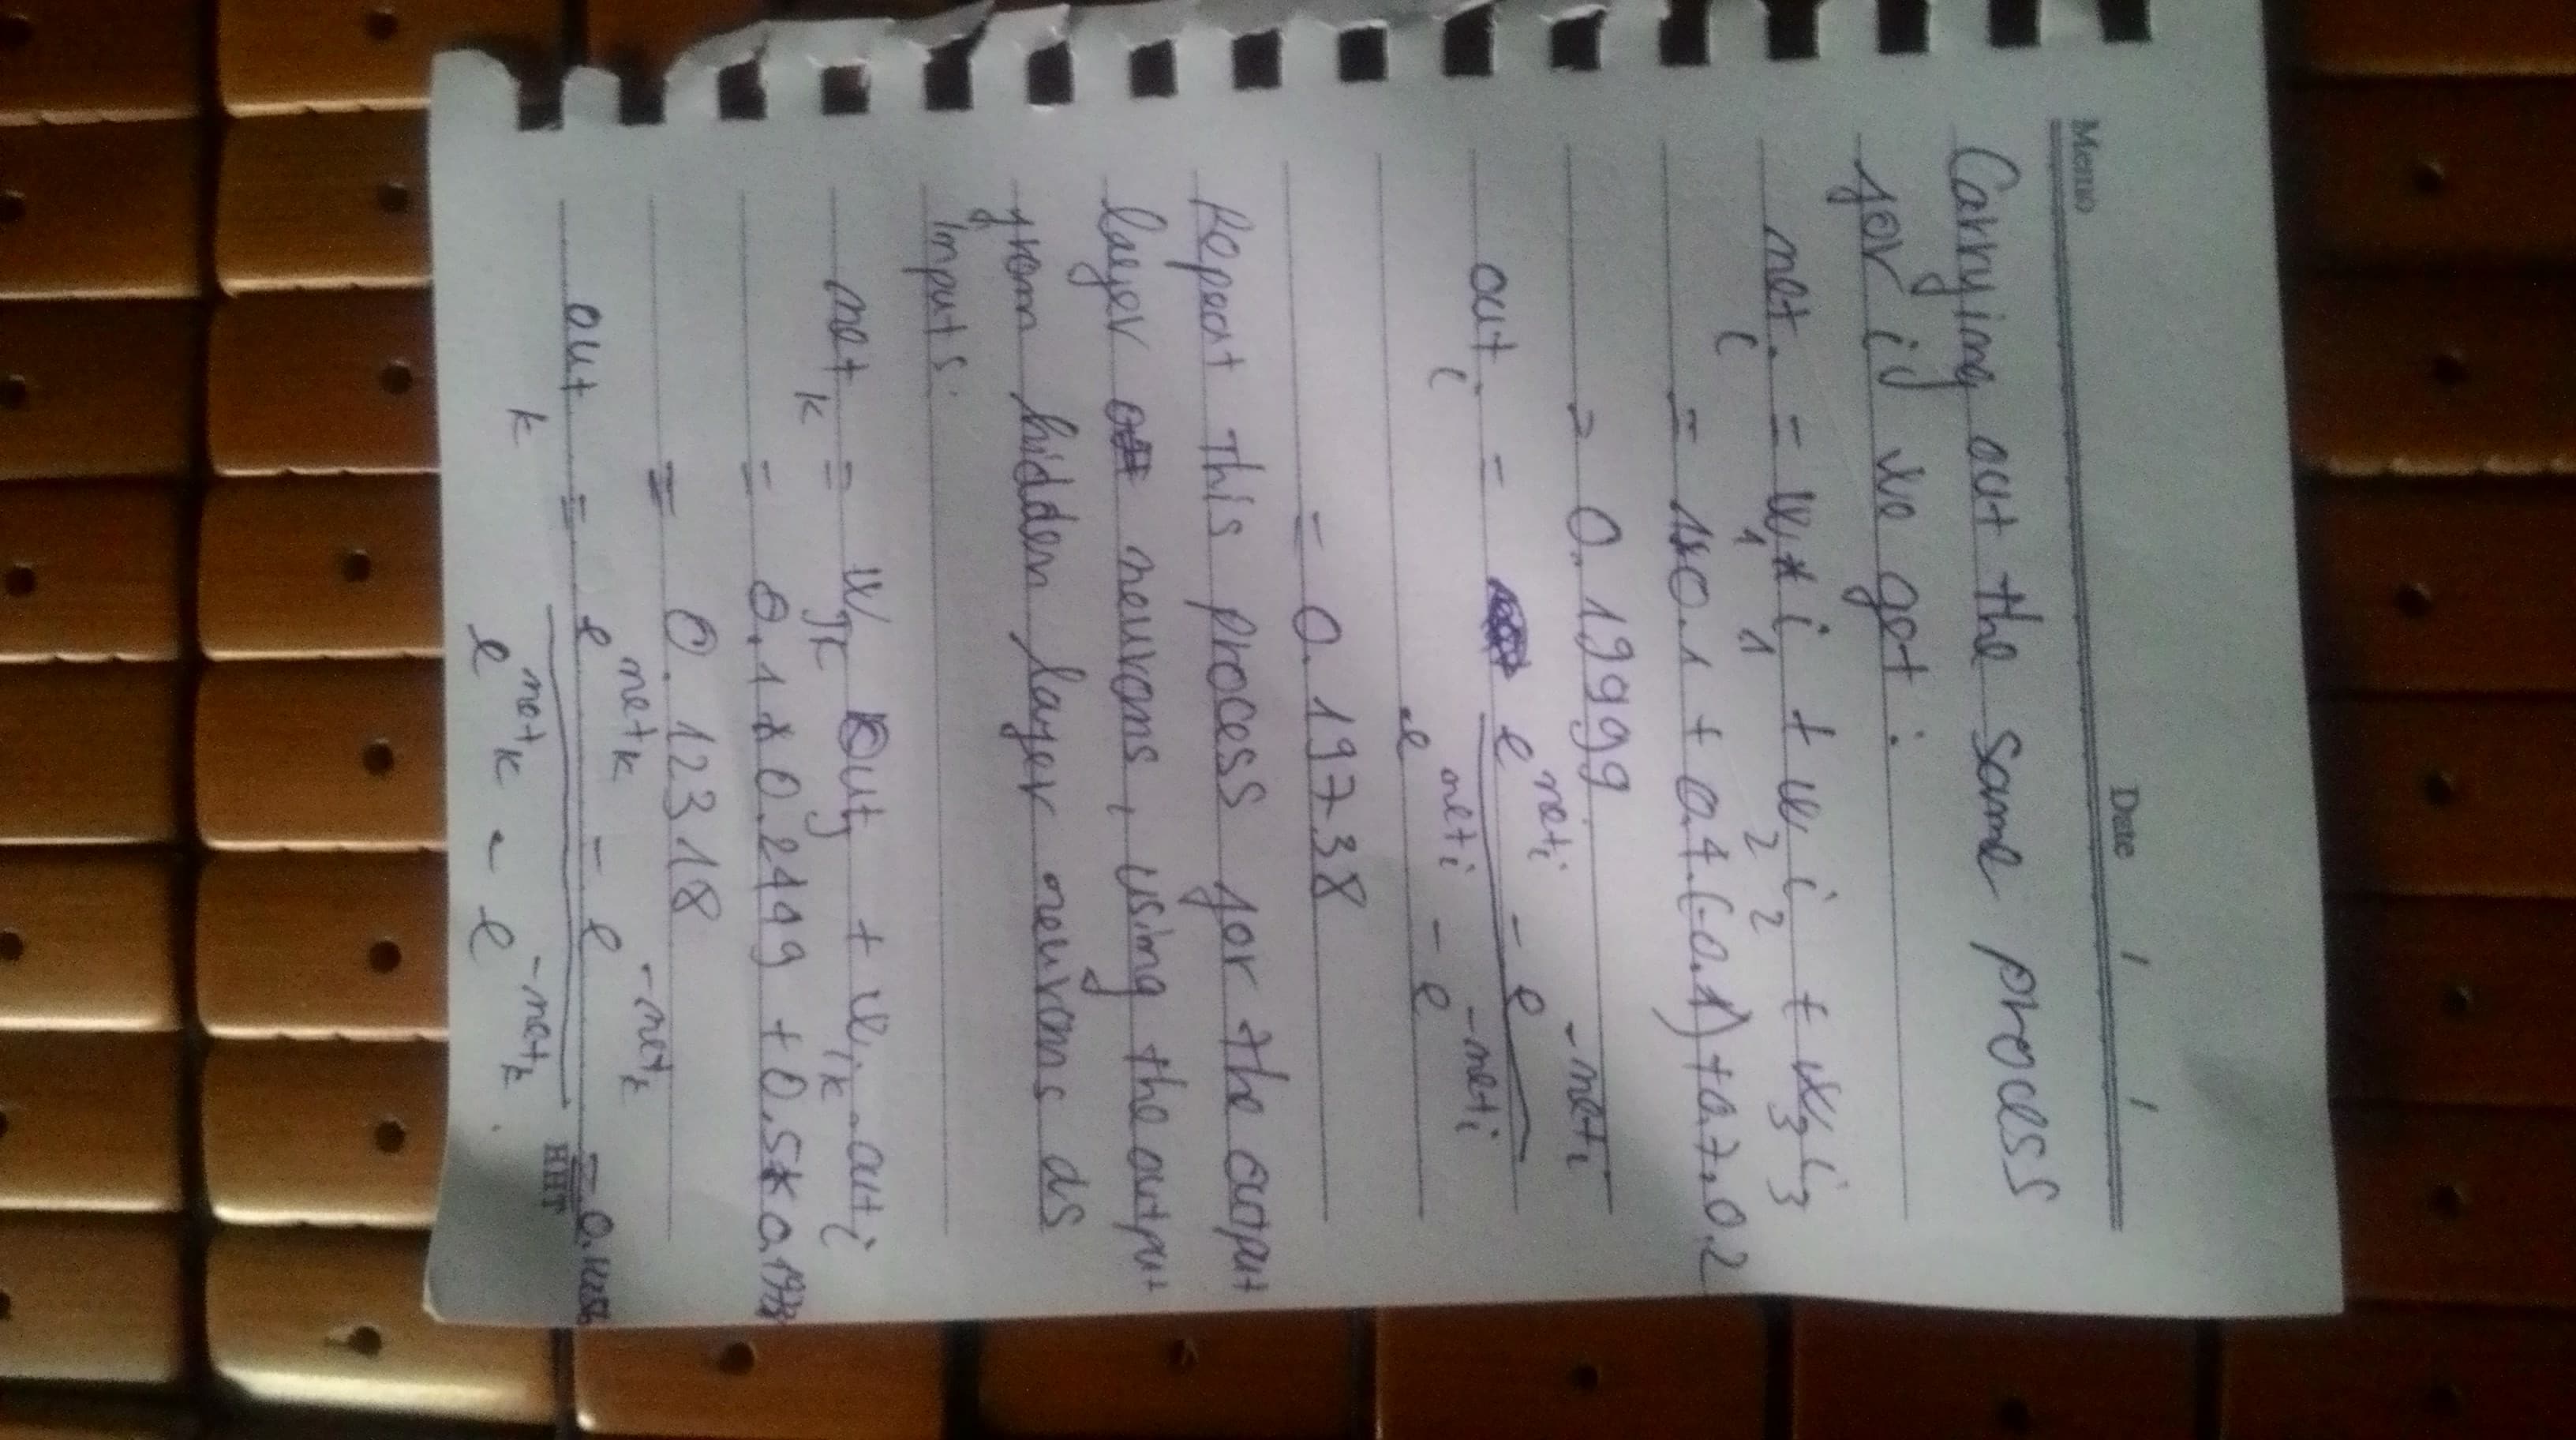 Memo Date / /
Carrying out the same process
for ij we got :
net i = w1*i1 + w2 i2 + w3 i3
= 1*0.1 + 0.4.(-0.1) + 0.7.0.2
= 0.1999
out i = e^net i - e^-net i
e^net i - e^-net i
= 0.1738
Repeat this process for the output
layer neurons, using the output
from hidden layer neurons as
inputs.
net k = w jk out j + w ik out i
= 0.1*0.2449 + 0.5*0.1938
= 0.12318
out k = e^net k - e^-net k =
e^net k - e^-net k .
HHT